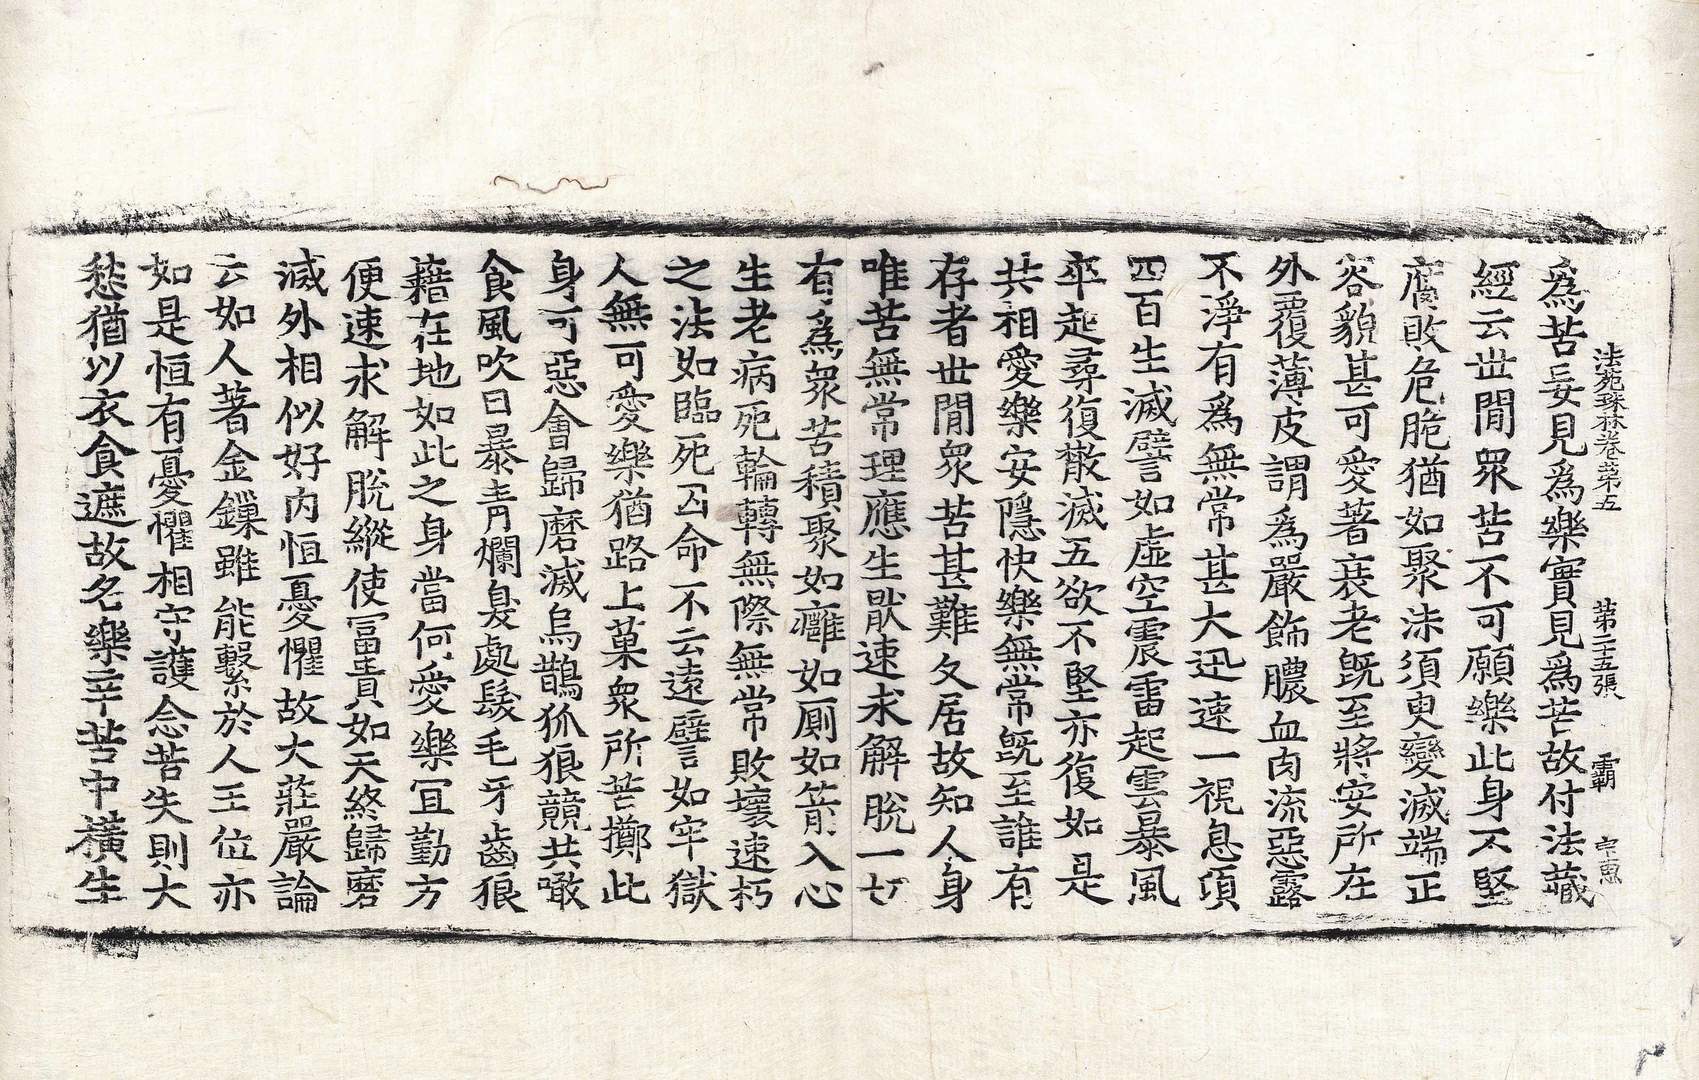 法苑珠林卷第五　第二十五張　霸
爲苦妄見爲樂實見爲苦故付法藏
經云世閒眾苦不可願樂此身不堅
腐敗危脆猶如聚沫須臾變滅端正
容貌甚可愛著衰老既至將安所在
外覆薄皮謂爲嚴飾膿血肉流惡露
不淨有爲無常甚大迅速一視息頃
四百生滅譬如虛空震雷起雲暴風
卒起尋復散滅五欲不堅亦復如是
共相愛樂安隱快樂無常既至誰有
存者世閒眾苦甚難久居故知人身
唯苦無常理應生猒速求解脫一切
有爲眾苦積聚如癰如厠如箭入心
生老病死輪轉無際無常敗壞速朽
之法如臨死囚命不云遠譬如牢獄
人無可愛樂猶路上菓眾所苦擲此
身可惡會歸磨滅烏鵲狐狼競共噉
食風吹日暴青爛臭處髮毛牙齒狼
藉在地如此之身當何愛樂宜勤方
便速求解脫縱使冨貴如天終歸磨
滅外相似好內恒憂懼故大莊嚴論
云如人著金鏁雖能繫於人王位亦
如是恒有憂懼相守護念苦失則大
愁猶以衣食遮故名樂辛苦中橫生